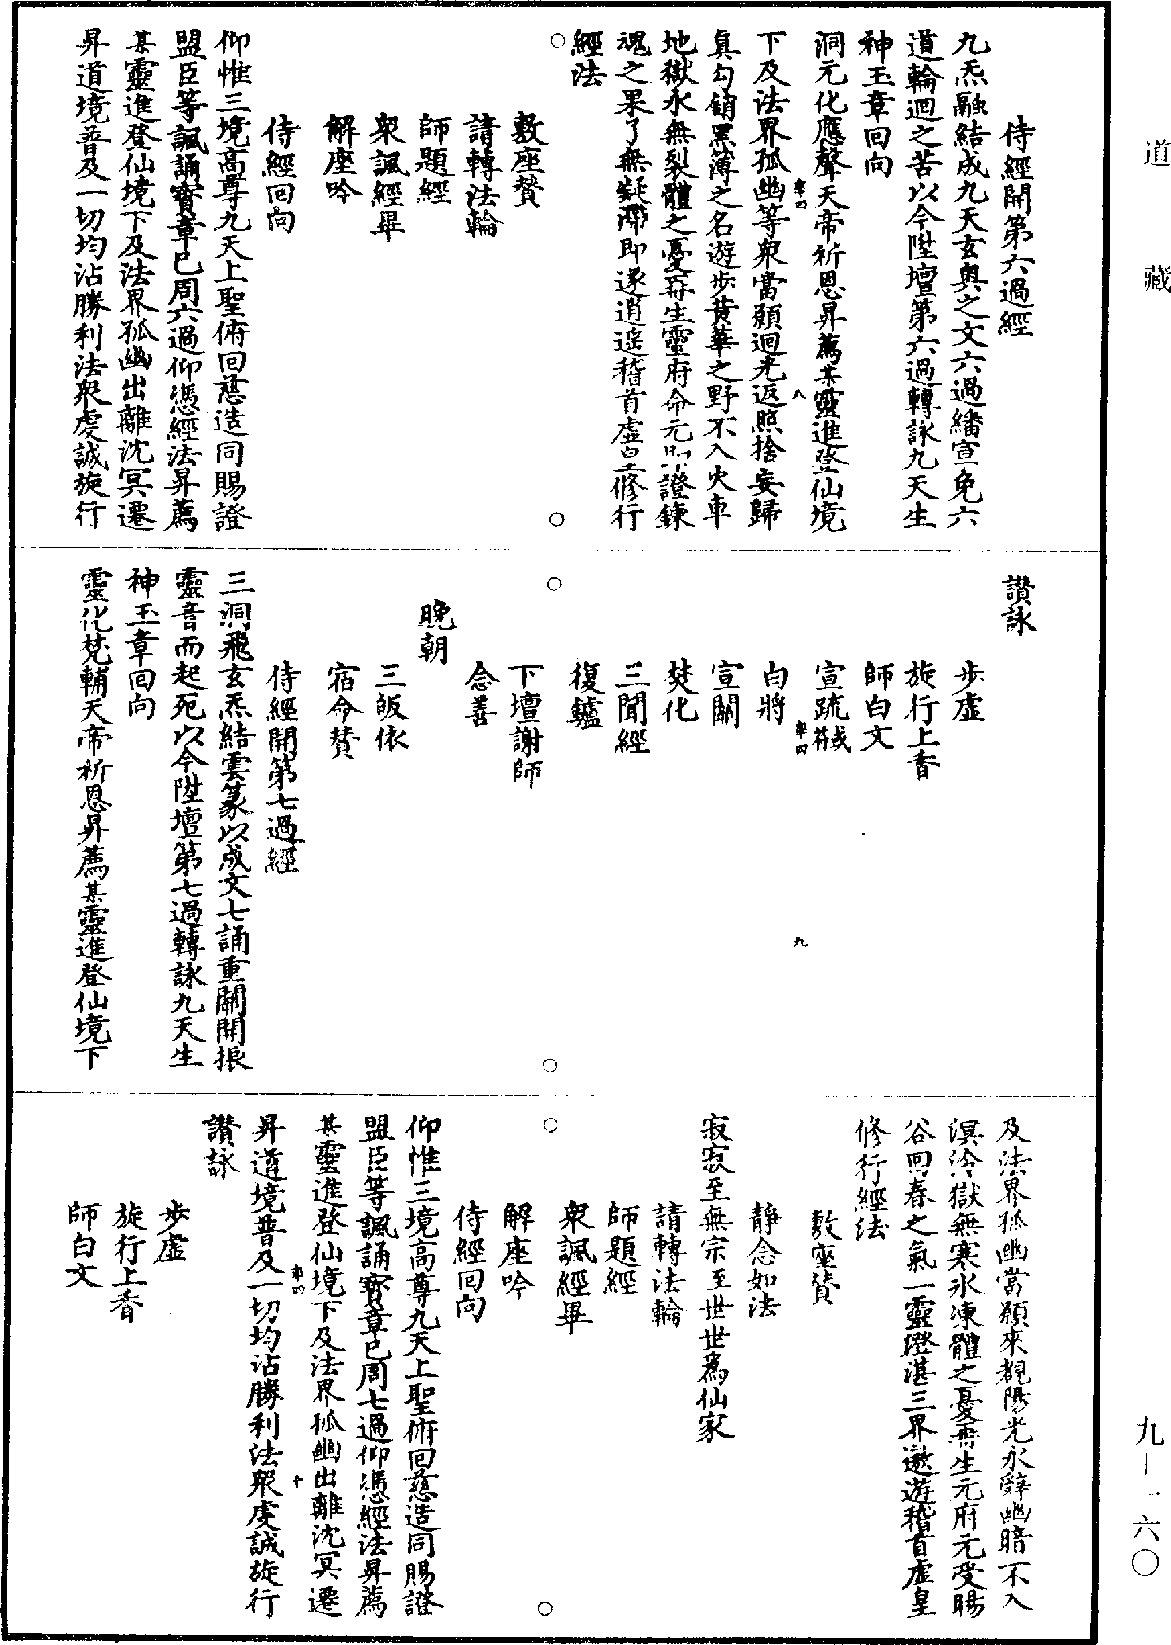 道藏
侍經開第六過經
九炁融結成九天玄奥之文六過繙宣免六
道輪迴之苦以今陞壇第六過轉詠九天生
神玉章回向
洞元化應聲天帝祈恩昇薦某靈進登仙境
章四
八
下及法界孤幽等衆當願迴光返照捨妄歸
真勾銷黑薄之名遊步黄華之野不入火車
地獄永無裂體之憂再生靈府命元即證鍊
魂之果了無疑滯即遂逍遥稽首虚皇修行
經法
敷座贊
請轉法輪
師題經
衆諷經畢
解座吟
侍經回向
仰惟三境高尊九天上聖俯回慈造同賜證
盟臣等諷誦寳章已周六過仰憑經法昇薦
某靈進登仙境下及法界孤幽出離沈冥遷
昇道境普及一切均沾勝利法衆虔誠旋行
讚詠
步虚
旋行上香
師白文
宣疏或符
章四
九
白將
宣關
焚化
三聞經
復鑪
下壇謝師
念善
晚朝
三皈依
宿命贊
侍經開第七過經
三洞飛玄炁結雲篆以成文七誦重關開振
靈音而起死以今陞壇第七過轉詠九天生
神玉章回向
靈化梵輔天帝祈恩昇薦某靈進登仙境下
及法界孤幽當願來覩陽光永辭幽暗不入
溟泠獄無寒氷凍體之憂再生元府元受暘
谷回春之氣一靈澄湛三界遨遊稽首虚皇
修行經法
敷座贊
靜念如法
寂寂至無宗至世世爲仙家
請轉法輪
師題經
衆諷經畢
解座吟
侍經回向
仰惟三境高尊九天上聖俯回慈造同賜證
盟臣等諷誦寳章已周七過仰憑經法昇薦
某靈進登仙境下及法界孤幽出離沈冥遷
章四
十
昇道境普及一切均沾勝利法衆虔誠旋行
讚詠
步虚
旋行上香
師白文
九—一六〇